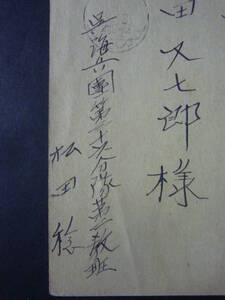 田又七郎様
呉海兵團第二十六分隊第一教班
松田 稔